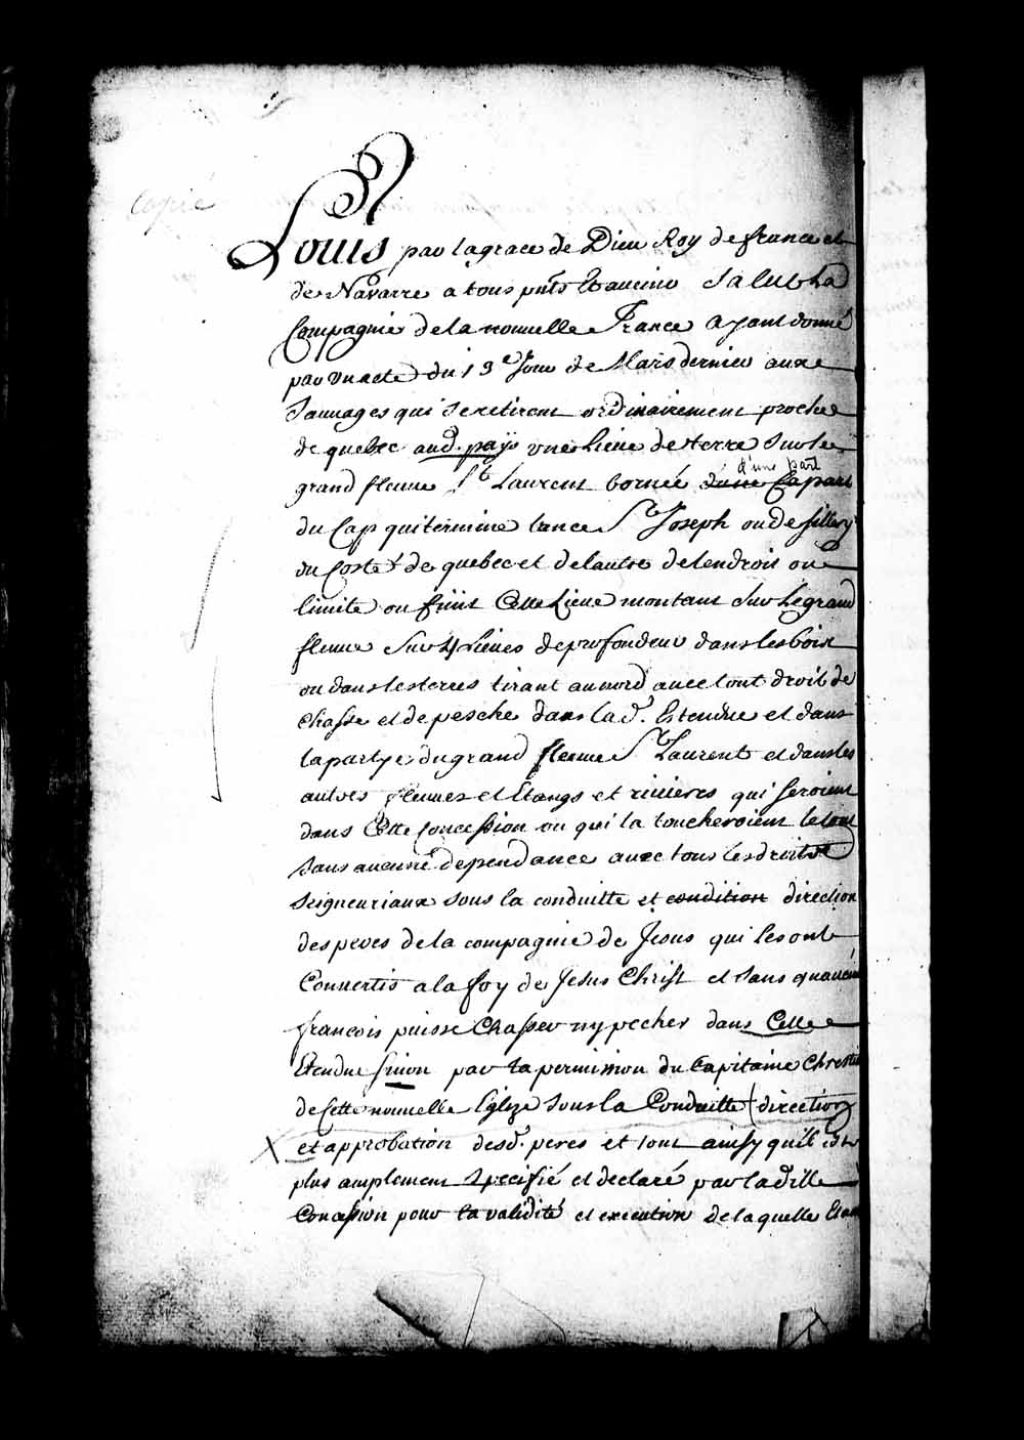 Copié
Louis par la grace de Dieu Roy de france et
de Navarre a tous pnts & avenir Salut La
Compagnie de la nouuelle France ayant donné
par un acte du 13e Jour de Mars dernier aux
Sauuages qui se retirent ordinairement proche
de quebec aud. pays une Lieue de terre sur le
d'une part
grand fleuue St Laurent bornée d'une Capart
du Cap qui termine lance St Joseph ou de sillery
du Costé de quebec et de lautre de lendroit ou
limite ou finit Cette Lieue montant sur le grand
fleuue sur 4 Lieues de profondeur dans les bois
ou dans les terres tirant au nord auec tout droit de
chasse et de pesche dans lad. Estendue et dans
la partye du grand fleuue St Laurent et dans les
autres fleuues et Etangs et riuieres qui seroient
dans Cette Concession ou qui la toucheroient le tout
sans aucune dependance auec tous les droits
seigneuriaux sous la conduitte et condition direction
des peres de la compagnie de Jesus qui les ont
Conuertis a la foy de Jesus Christ et sans quaucun
francois puisse Chasser ny pecher dans Cette
Etendue sinon par la permission du Capitaine Chrestien
de Cette nouuelle Eglize sous la Conduitte (direction
X et approbation desd. peres et tout ainsy quil est
plus amplement specifié et declaré par laditte
Concession pour la validité et execution de laquelle